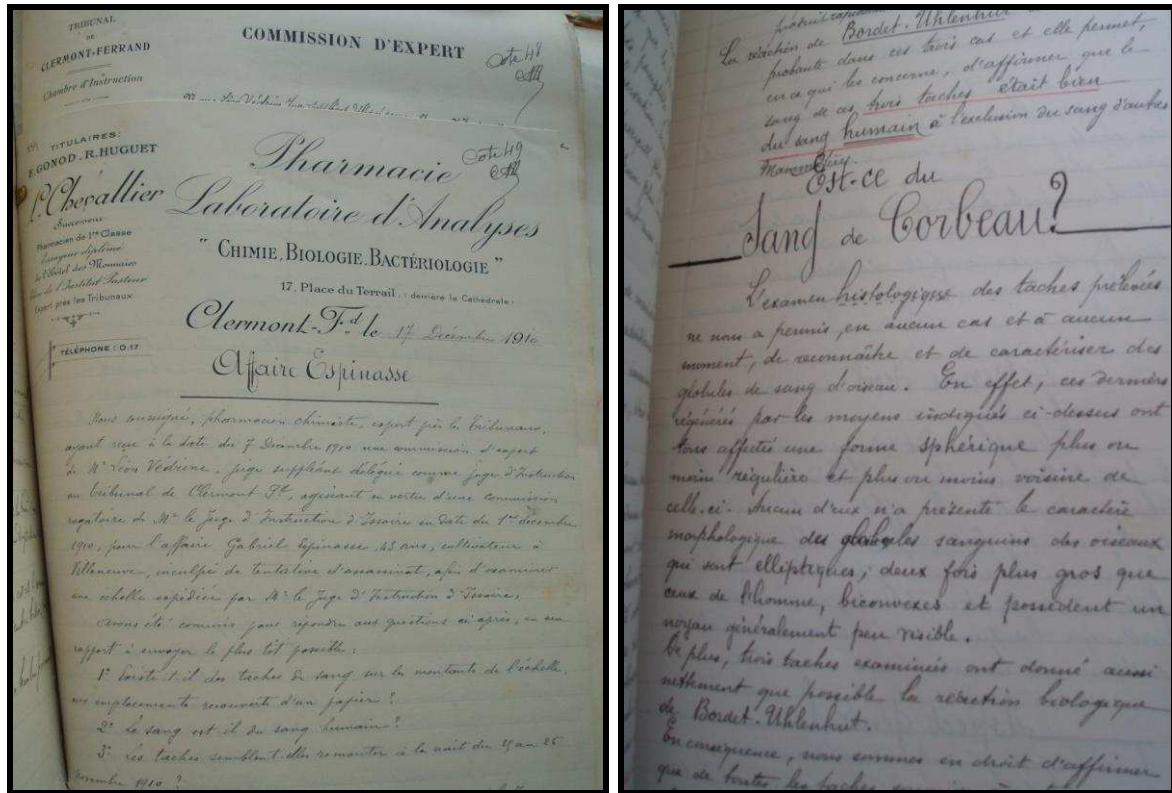 TRIBUNAL
DE
CLERMONT-FERRAND
Chambre d'Instruction
COMMISSION D'EXPERT
Cote 48
TITULAIRES:
E. GONOD. R. HUGUET
P. Chevallier
Successeur
Pharmacien de 1re Classe
Essayeur diplômé
de l'Hôtel des Monnaies
de l'Institut Pasteur
Expert près les Tribunaux
TÉLÉPHONE: 0.17
Cote 49
Pharmacie
Laboratoire d'Analyses
"CHIMIE. BIOLOGIE. BACTÉRIOLOGIE"
17, Place du Terrail, (derrière la Cathédrale)
Clermont-Fd le 17 Décembre 1910
Affaire Espinasse
Nous soussigné, pharmacien chimiste, expert près les Tribunaux,
ayant reçu à la date du 7 Décembre 1910 une commission d'expert
de Mr Léon Védrine, juge suppléant délégué comme juge d'Instruction
au tribunal de Clermont Fd, agissant en vertu d'une commission
rogatoire de Mr le Juge d'Instruction d'Issoire en date du 1er décembre
1910, pour l'affaire Gabriel Espinasse, 43 ans, cultivateur à
Villeneuve, inculpé de tentative d'assassinat, afin d'examiner
une échelle expédiée par Mr le Juge d'Instruction d'Issoire,
avons été commis pour répondre aux questions ci après, en un
rapport à envoyer le plus tôt possible:
1° Existe-t-il des taches de sang sur les montants de l'échelle,
aux emplacements recouverts d'un papier?
2° Le sang est-il du sang humain?
3° Les taches semblent-elles remonter à la nuit du 25 au 26
novembre 1910?
La réaction de Bordet-Uhlenhut
probante dans ces trois cas et elle permet,
en ce qui les concerne, d'affirmer que le
sang de ces trois taches était bien
du sang humain à l'exclusion du sang d'autres
Mammifères.
Est-ce du
Sang de Corbeau?
L'examen histologique des taches prélevées
ne nous a permis, en aucun cas et à aucun
moment, de reconnaître et de caractériser des
globules de sang d'oiseau. En effet, ces derniers
régénérés par les moyens indiqués ci-dessus ont
tous affecté une forme sphérique plus ou
moins régulière et plus ou moins voisine de
celle-ci. Aucun d'eux n'a présenté le caractère
morphologique des globules sanguins des oiseaux
qui sont elliptiques; deux fois plus gros que
ceux de l'homme, biconvexes et possèdent un
noyau généralement peu visible.
De plus, trois taches examinées ont donné aussi
nettement que possible la réaction biologique
de Bordet-Uhlenhut.
En conséquence, nous sommes en droit d'affirmer
que de toutes les taches